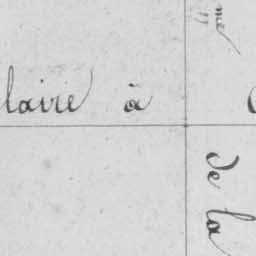 laire à
de la